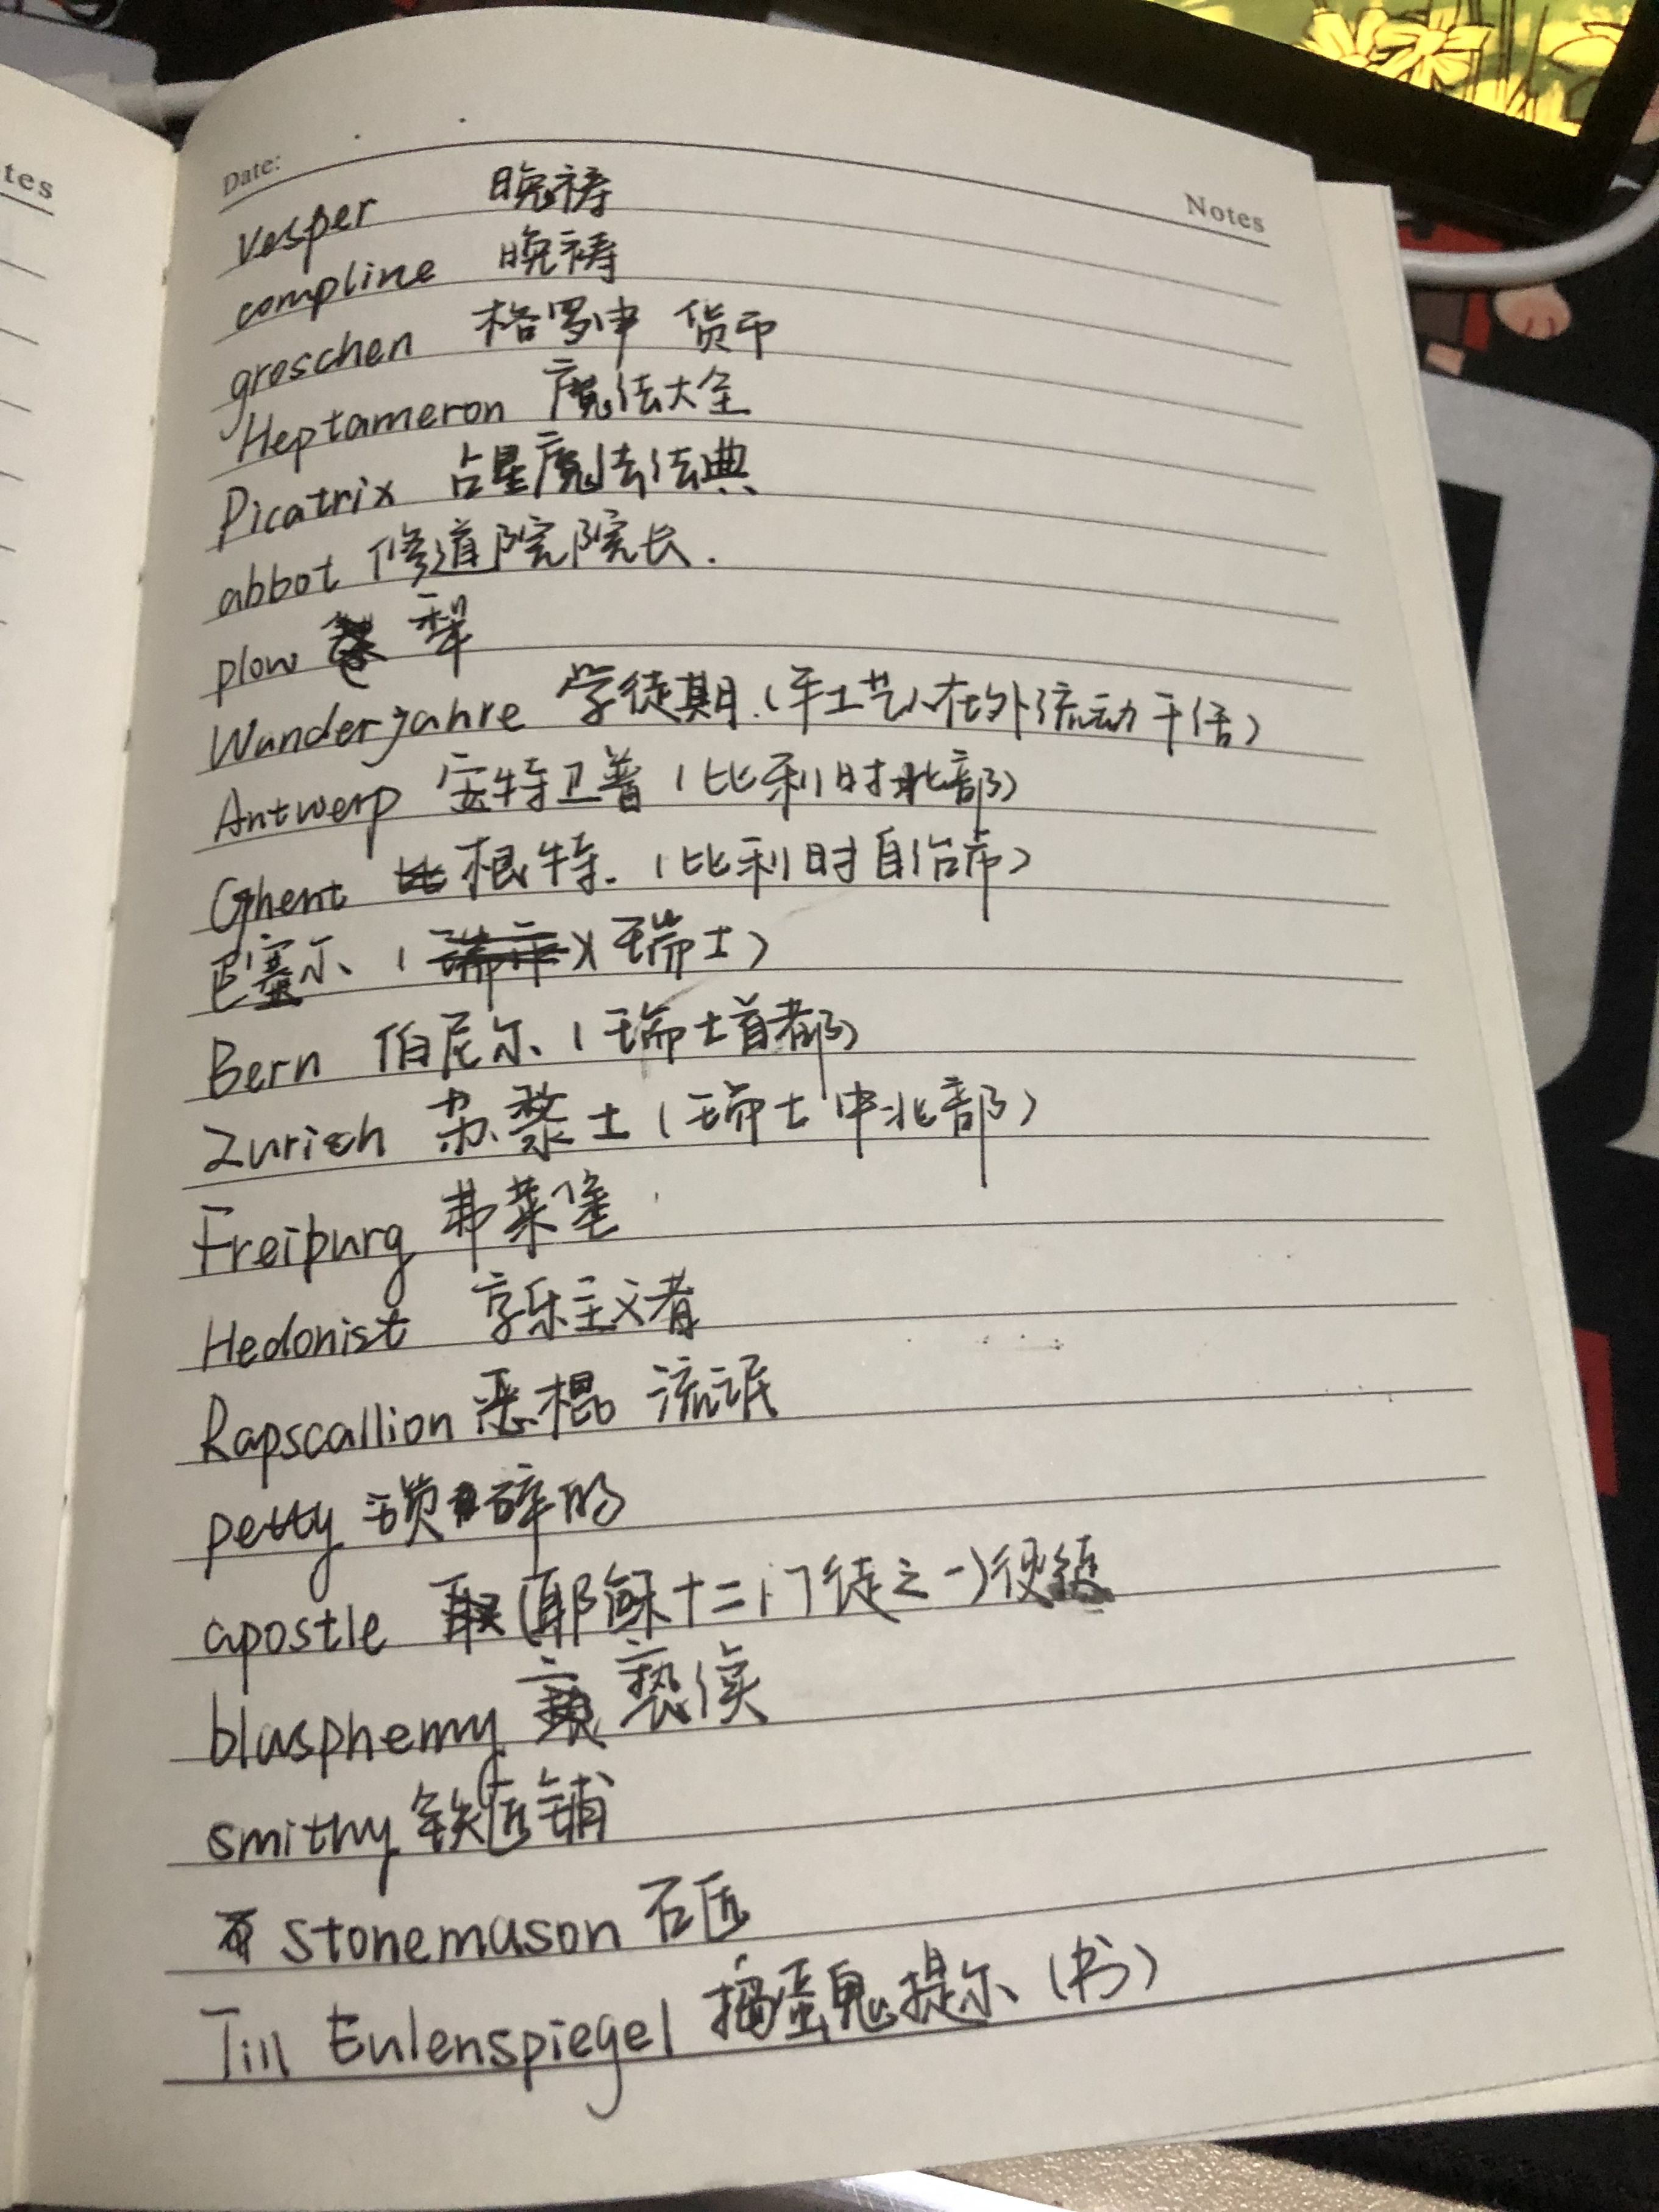 tes
Date:
Notes
Vesper 晚祷
compline 晚祷
groschen 格罗申 货币
Heptameron 魔法大全
Picatrix 占星魔法法典
abbot 修道院院长.
plow 犁
Wanderjahre 学徒期.(手工艺人在外流动干活)
Antwerp 安特卫普(比利时北部)
Ghent 根特.(比利时自治市)
巴塞尔(瑞士)
Bern 伯尼尔(瑞士首都)
Zurich 苏黎士(瑞士中北部)
Freiburg 弗莱堡
Hedonist 享乐主义者
Rapscallion 恶棍 流氓
petty 琐碎的
apostle (耶稣十二门徒之一)使徒
blasphemy 亵渎
smithy 铁匠铺
stonemason 石匠
Till Eulenspiegel 捣蛋鬼提尔(书)